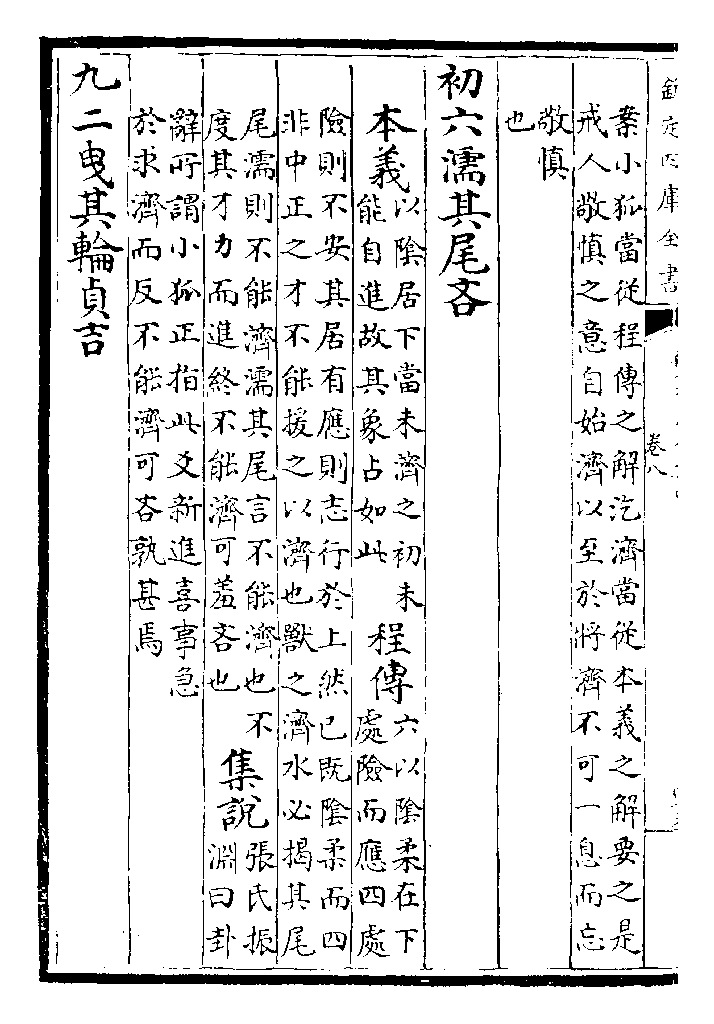 欽定四庫全書
卷八
案小狐當從程傳之解汔濟當從本義之解要之是
戒人敬慎之意自始濟以至於將濟不可一息而忘
敬慎
也
初六濡其尾吝
本義
以陰居下當未濟之初未
能自進故其象占如此
程傳
六以陰柔在下
處險而應四處
險則不安其居有應則志行於上然已既陰柔而四
非中正之才不能援之以濟也獸之濟水必揭其尾
尾濡則不能濟濡其尾言不能濟也不
度其才力而進終不能濟可羞吝也
集說
張氏振
淵曰卦
辭所謂小狐正指此爻新進喜事急
於求濟而反不能濟可吝孰甚焉
九二曳其輪貞吉